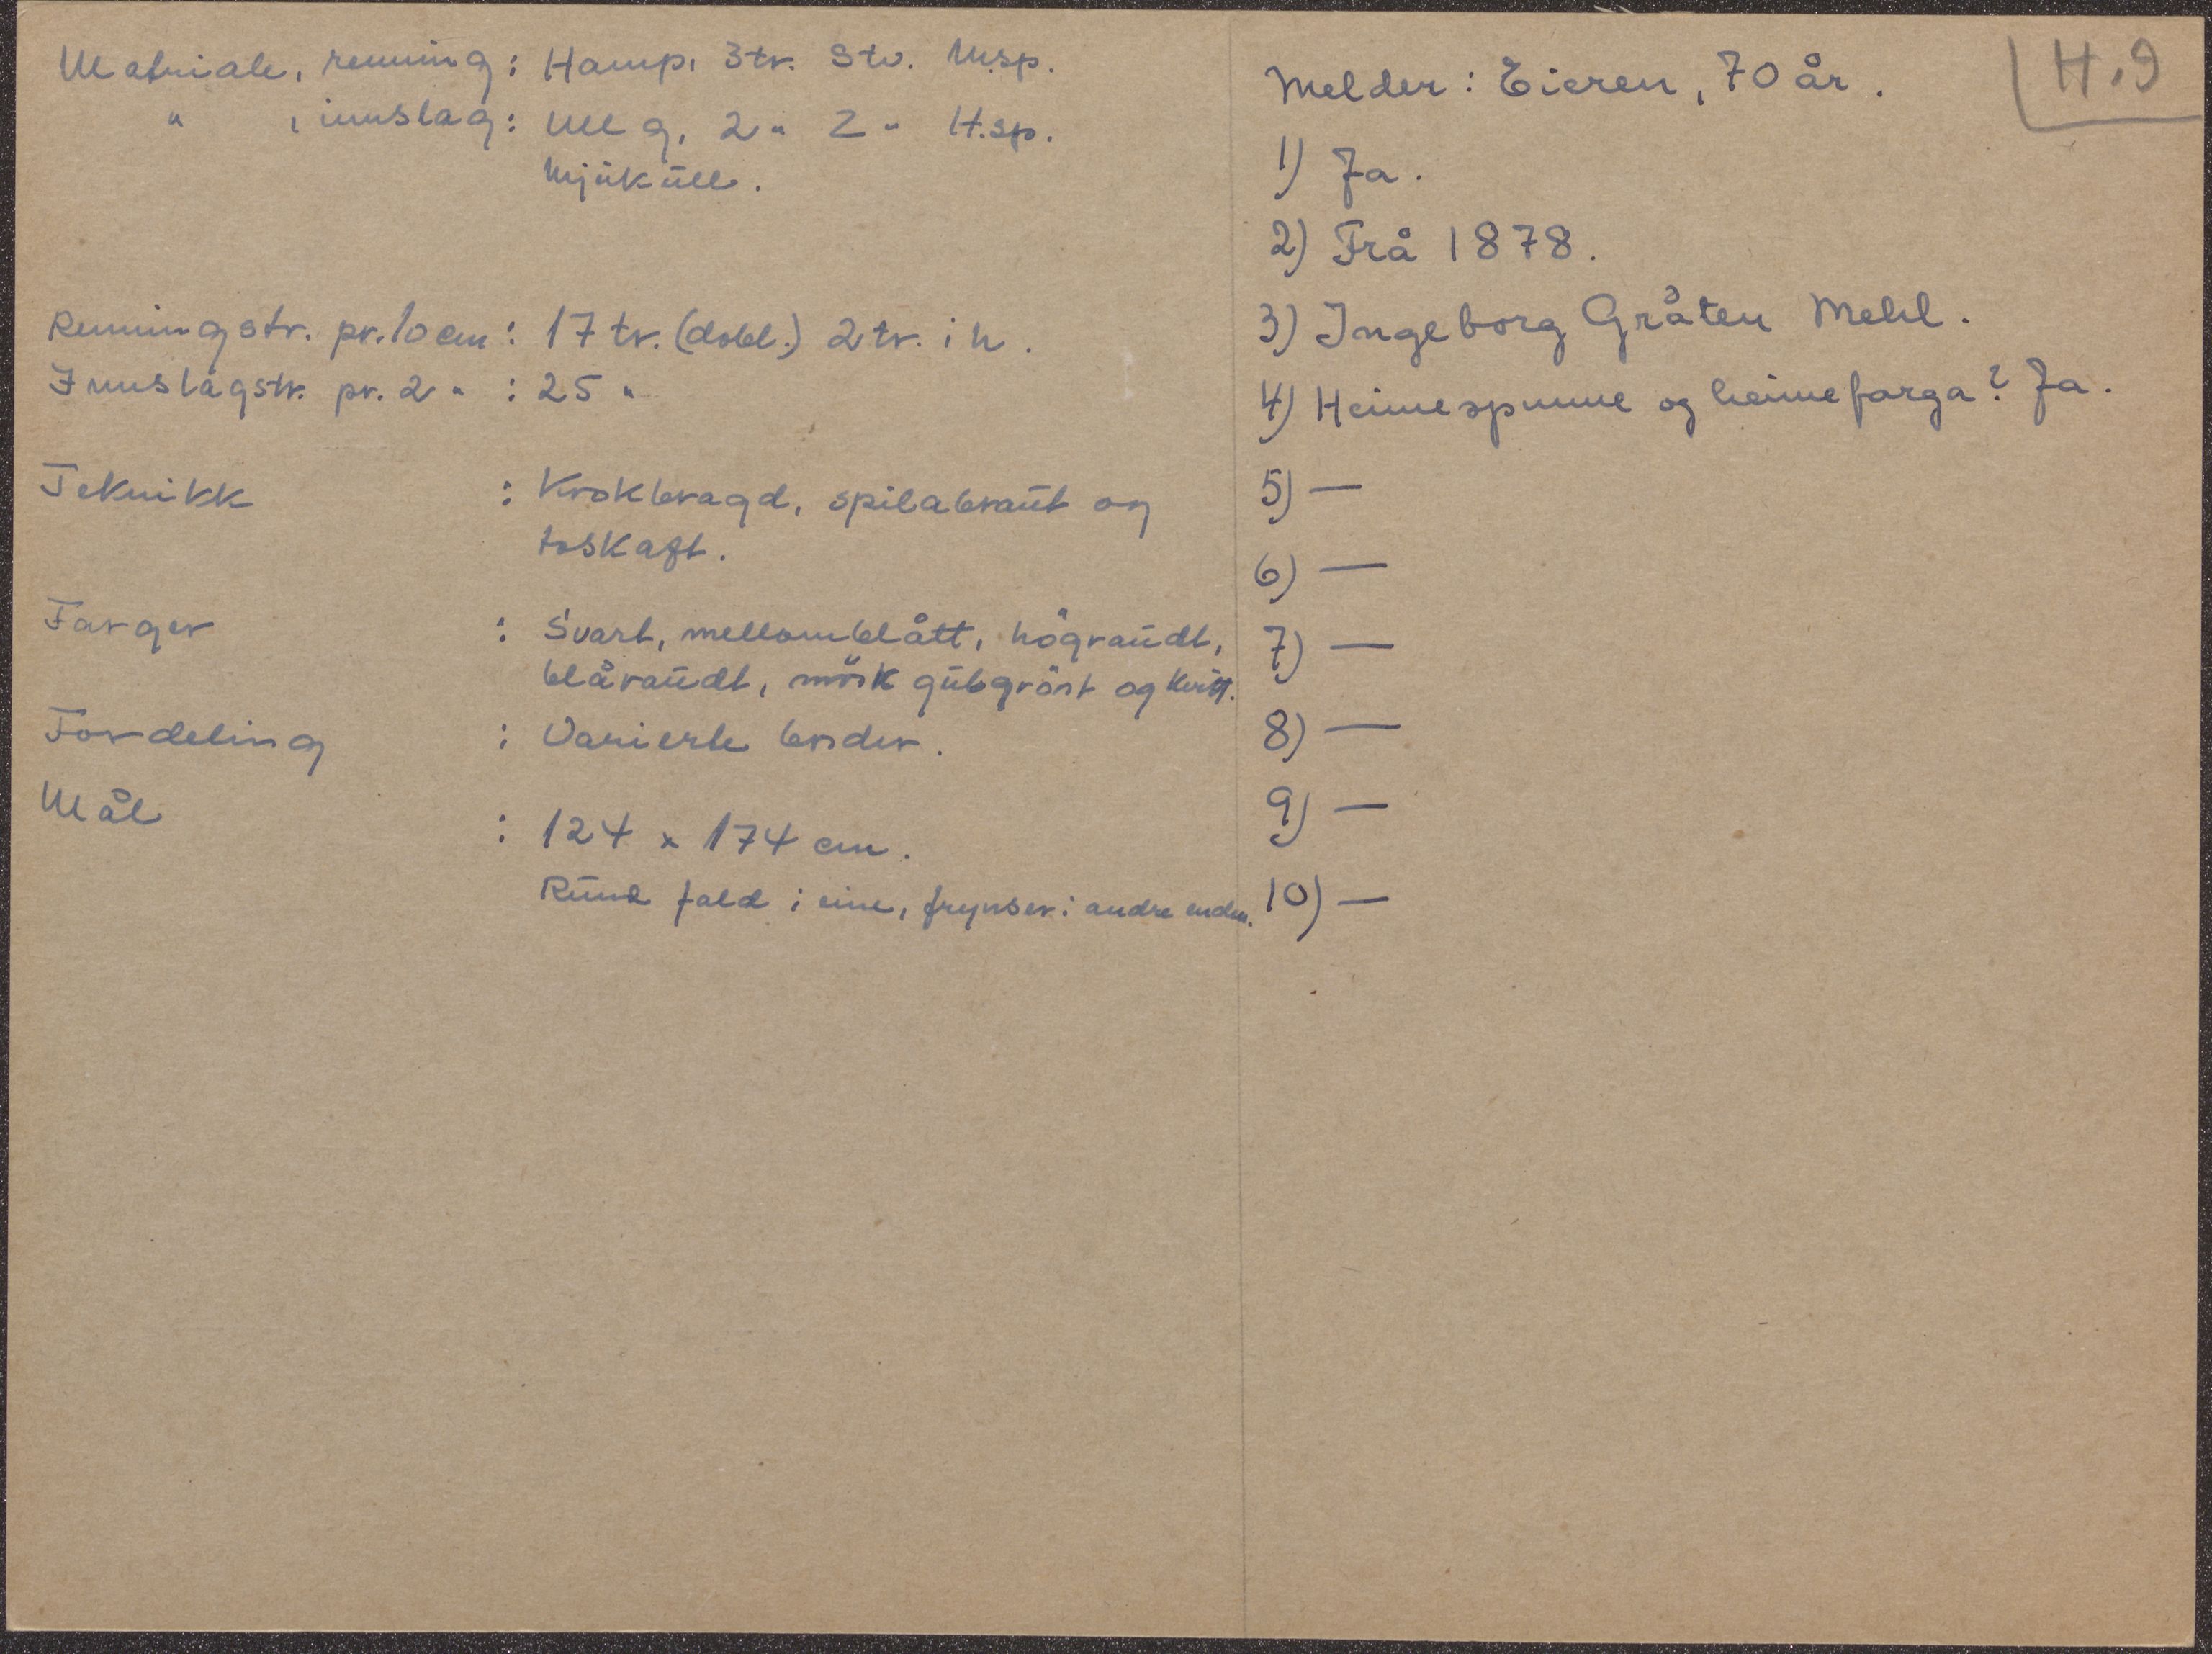 Materiale, renning: Hamp, 3tr. Stv. M.sp.
" , innslag: Ull g, 2 " Z " H.sp.
Mjuk ull.
Renningstr. pr. 10 cm: 17 tr. (dobl.) 2 tr. i h.
Innslagstr. pr. 2 " : 25 "
Teknikk : Krokbragd, spilabraut og
toskaft.
Farger : Svart, mellomblått, högraudt,
blåraudt, mörk gulgrönt og kvitt.
Fordeling : Varierte border.
Mål : 124 x 174 cm.
Rund fald i eine, frynser i andre enden.
H.9
Melder: Eieren, 70 år.
1) Ja.
2) Frå 1878.
3) Ingeborg Gråten Mehl.
4) Heimespunne og heimefarga? Ja.
5) —
6) —
7) —
8) —
9) —
10) —